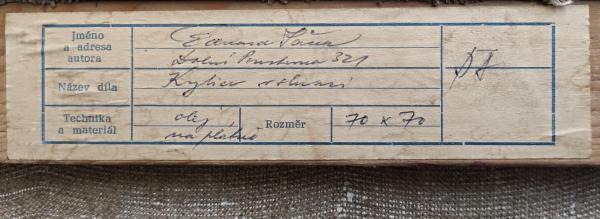 Jméno
a adresa
autora
Eduard
Dolní 321
Název díla
Kytice
Technika
a materiál
olej
na plátně
Rozměr
70 x 70